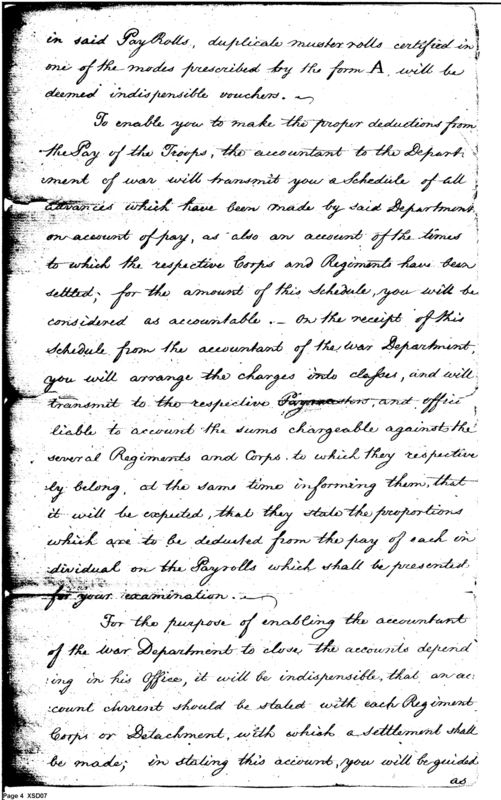 in said PayRolls, duplicate muster rolls certified in
one of the modes prescribed by the form A, will be
deemed indispensible vouchers. —
To enable you to make the proper deductions from
the Pay of the Troops, the accountant to the Depart-
ment of war will transmit you a Schedule of all
advances which have been made by said Department
on account of pay, as also an account of the times
to which the respective Corps and Regiments have been
settled; for the amount of this Schedule, you will be
considered as accountable. — On the receipt of this
schedule from the accountant of the war Department,
you will arrange the charges into classes, and will
transmit to the respective Paymasters, and offic
liable to account the sums chargeable against the
several Regiments and Corps to which they respective
ly belong, at the same time informing them, that
it will be expected, that they state the proportions
which are to be deducted from the pay of each in
dividual on the Payrolls which shall be presented
for your examination. —
For the purpose of enabling the accountant
of the war Department to close the accounts depend
ing in his Office, it will be indispensible, that an ac-
count current should be stated with each Regiment
Corps or Detachment, with which a settlement shall
be made; in stating this account, you will be guided
as
Page 4 XSD07